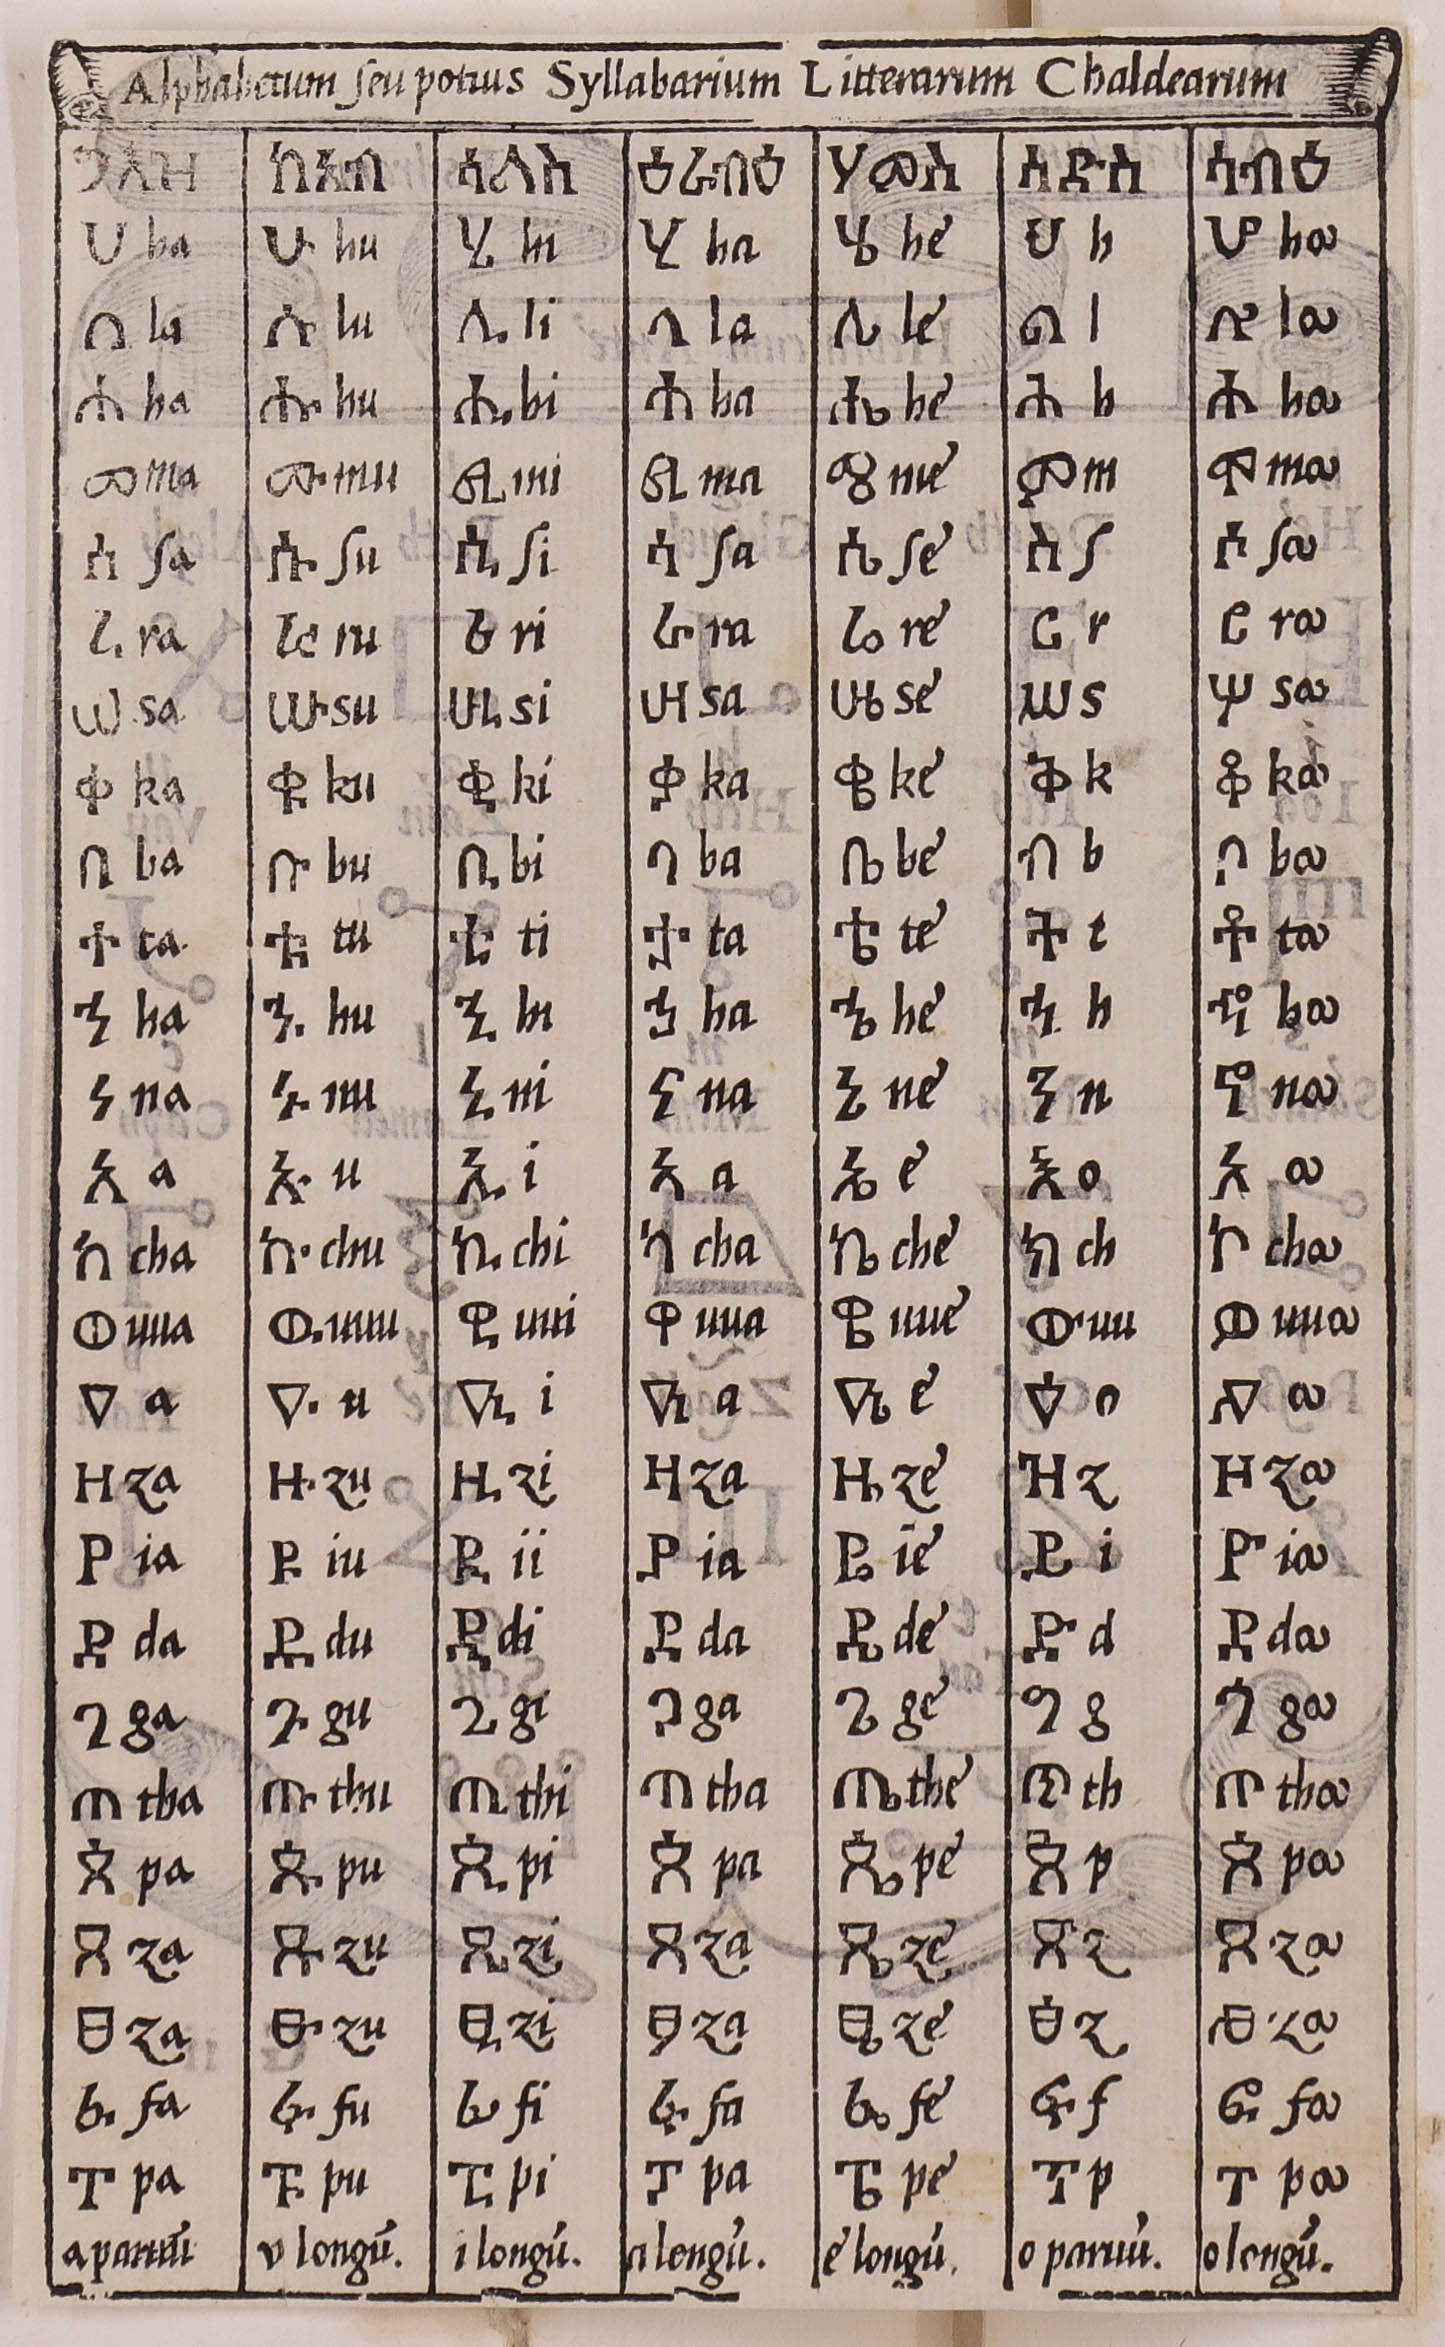 Alphabetum ſeu potius Syllabarium Litterarum Chaldearum
ግእዘ ካእብ ሳልስ ዕራብዕ ሃመስ ሰድስ ሳብዕ
ሀ ha ሁ hu ሂ hi ሃ ha ሄ hé ህ h ሆ hω
ለ la ሉ lu ሊ li ላ la ሌ lé ል l ሎ lω
ሐ ha ሑ hu ሒ hi ሓ ha ሔ hé ሕ h ሖ hω
መ ma ሙ mu ሚ mi ማ ma ሜ mé ም m ሞ mω
ሰ ſa ሱ ſu ሲ ſi ሳ ſa ሴ ſé ስ ſ ሶ ſω
ረ ra ሩ ru ሪ ri ራ ra ሬ ré ር r ሮ rω
ሠ sa ሡ su ሢ si ሣ sa ሤ sé ሥ s ሦ sω
ቀ ka ቁ ku ቂ ki ቃ ka ቄ ké ቅ k ቆ kω
በ ba ቡ bu ቢ bi ባ ba ቤ bé ብ b ቦ bω
ተ ta ቱ tu ቲ ti ታ ta ቴ té ት t ቶ tω
ኀ ha ኁ hu ኂ hi ኃ ha ኄ hé ኅ h ኆ hω
ነ na ኑ nu ኒ ni ና na ኔ né ን n ኖ nω
አ a ኡ u ኢ i ኣ a ኤ é እ o ኦ ω
ከ cha ኩ chu ኪ chi ካ cha ኬ ché ክ ch ኮ chω
ወ uua ዉ uuu ዊ uui ዋ uua ዌ uué ው uu ዎ uuω
ዐ a ዑ u ዒ i ዓ a ዔ é ዕ o ዖ ω
ዘ za ዙ zu ዚ zi ዛ za ዜ zé ዝ z ዞ zω
የ ia ዩ iu ዪ ii ያ ia ዬ ié ይ i ዮ iω
ደ da ዱ du ዲ di ዳ da ዴ dé ድ d ዶ dω
ገ ga ጉ gu ጊ gi ጋ ga ጌ gé ግ g ጎ gω
ጠ tha ጡ thu ጢ thi ጣ tha ጤ thé ጥ th ጦ thω
ጰ pa ጱ pu ጲ pi ጳ pa ጴ pé ጵ p ጶ pω
ጸ za ጹ zu ጺ zi ጻ za ጼ zé ጽ z ጾ zω
ፀ za ፁ zu ፂ zi ፃ za ፄ zé ፅ z ፆ zω
ፈ fa ፉ fu ፊ fi ፋ fa ፌ fé ፍ f ፎ fω
ፐ pa ፑ pu ፒ pi ፓ pa ፔ pé ፕ p ፖ pω
a paruū v longū. i longū. a longū. é longū. o paruū. o longū.